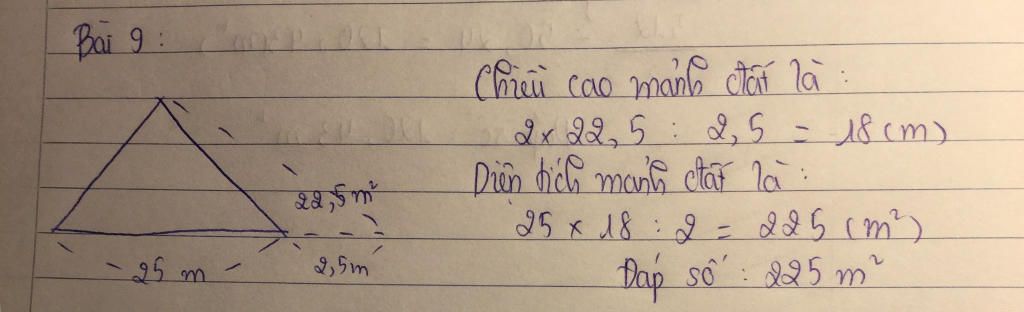 Bài 9 :
Chiều cao mảnh đất là :
2 × 22,5 : 2,5 = 18 (m)
Diện tích mảnh đất là :
25 × 18 : 2 = 225 (m²)
Đáp số : 225 m²
22,5 m²
25 m
2,5m